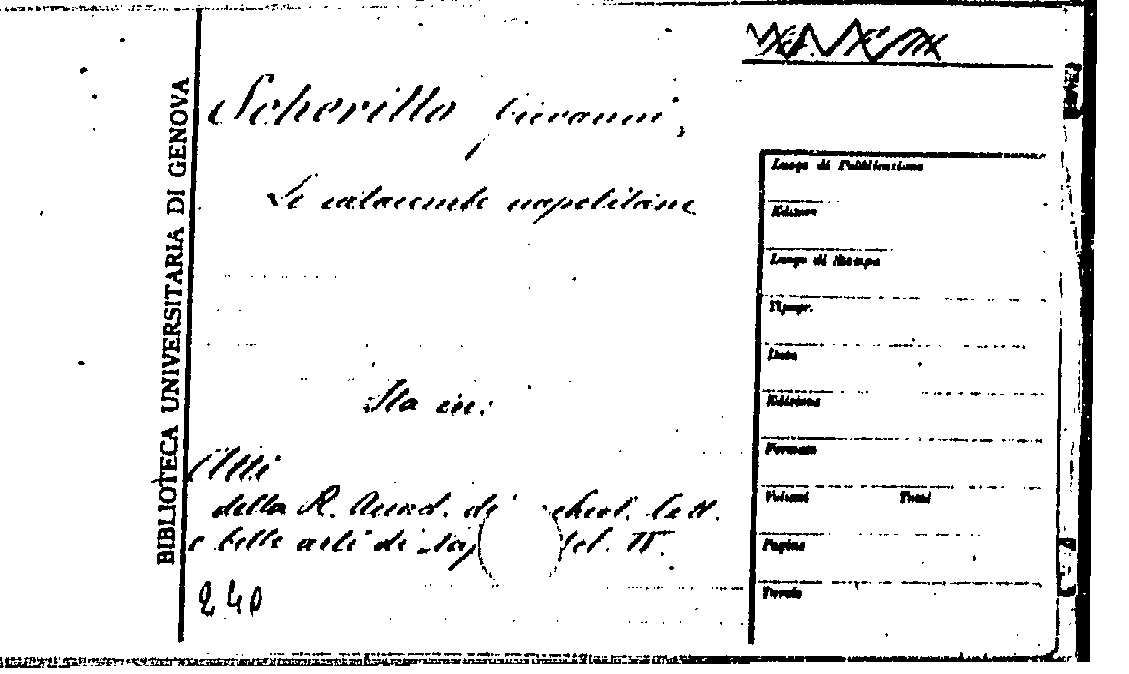 BIBLIOTECA UNIVERSITARIA DI GENOVA
Scherillo Giovanni,
Le catacombe napolitane
Sta in:
Atti
della R. Accad. di archeol. lett.
e belle arti di Nap
240
Luogo di Pubblicazione
Editore
Luogo di Stampa
Tipogr.
Data
Edizione
Formato
Volumi Tomi
Pagine
Tavole